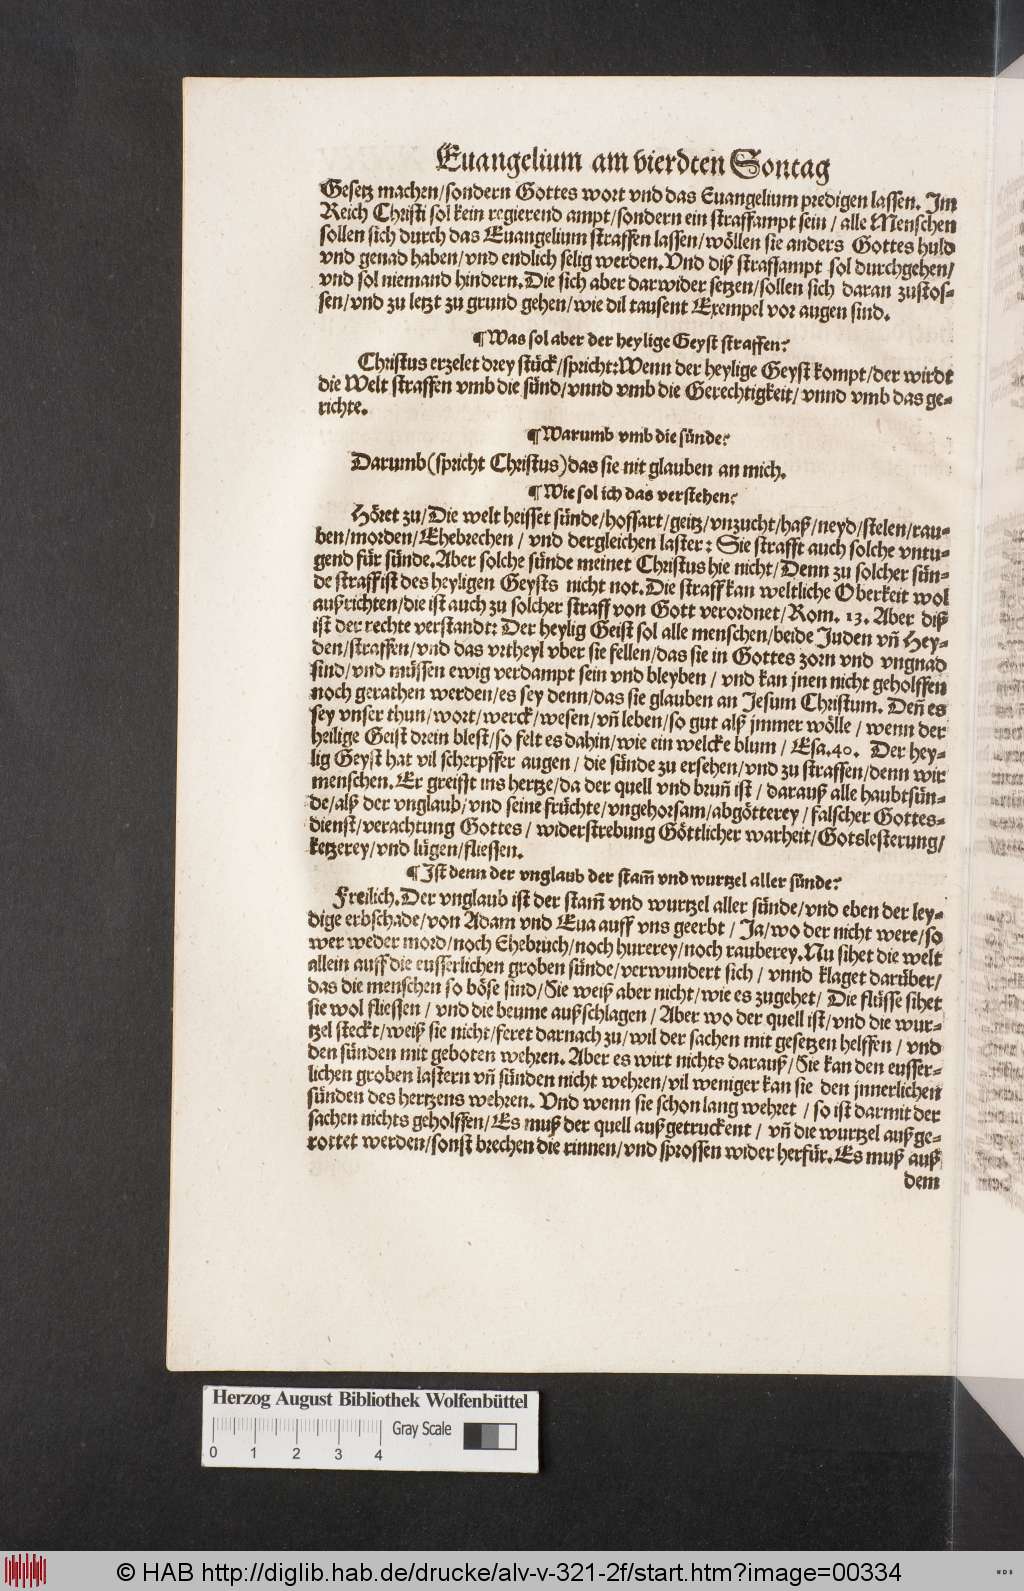 Euangelium am vierdten Sontag
Gesetz machen/sondern Gottes wort vnd das Euangelium predigen lassen. Im
Reich Christi sol kein regierend ampt/sondern ein straffampt sein / alle Menschen
sollen sich durch das Euangelium straffen lassen/wöllen sie anders Gottes huld
vnd genad haben/vnd endlich selig werden. Vnd diß straffampt sol durchgehen/
vnd sol niemand hindern. Die sich aber darwider setzen/sollen sich daran zustos-
sen/vnd zu letzt zu grund gehen/wie vil tausent Exempel vor augen sind.
¶ Was sol aber der heylige Geyst straffen?
Christus erzelet drey stück/spricht: Wenn der heylige Geyst kompt/der wirdt
die Welt straffen vmb die sünd/vnnd vmb die Gerechtigkeit/vnnd vmb das ge-
richte.
¶ Warumb vmb die sünde?
Darumb (spricht Christus) das sie nit glauben an mich.
¶ Wie sol ich das verstehen?
Höret zu/Die welt heisset sünde/hoffart/geitz/vnzucht/haß/neyd/stelen/rau-
ben/morden/Ehebrechen / vnd dergleichen laster: Sie strafft auch solche vntu-
gend für sünde. Aber solche sünde meinet Christus hie nicht/Denn zu solcher sün-
de straff ist des heyligen Geysts nicht not. Die straff kan weltliche Oberkeit wol
außrichten/die ist auch zu solcher straff von Gott verordnet/Rom. 13. Aber diß
ist der rechte verstandt: Der heylig Geist sol alle menschen/beide Juden vñ Hey-
den/straffen/vnd das vrtheyl vber sie fellen/das sie in Gottes zorn vnd vngnad
sind/vnd müssen ewig verdampt sein vnd bleyben / vnd kan jnen nicht geholffen
noch gerathen werden/es sey denn/das sie glauben an Jesum Christum. Deñ es
sey vnser thun/wort/werck/wesen/vñ leben/so gut alß jmmer wölle / wenn der
heilige Geist drein blest/so felt es dahin/wie ein welcke blum / Esa. 40. Der hey-
lig Geyst hat vil scherpffer augen / die sünde zu ersehen/vnd zu straffen/denn wir
menschen. Er greifft ins hertze/da der quell vnd bruñ ist / darauß alle haubtsün-
de/alß der vnglaub/vnd seine früchte/vngehorsam/abgötterey / falscher Gottes-
dienst/verachtung Gottes / widerstrebung Göttlicher warheit/Gotslesterung/
ketzerey/vnd lügen/fliessen.
¶ Ist denn der vnglaub der stam̃ vnd wurtzel aller sünde?
Freilich. Der vnglaub ist der stam̃ vnd wurtzel aller sünde/vnd eben der ley-
dige erbschade/von Adam vnd Eua auff vns geerbt / Ja/wo der nicht were/so
wer weder mord/noch Ehebruch/noch hurerey/noch rauberey. Nu sihet die welt
allein auff die eusserlichen groben sünde/verwundert sich / vnnd klaget darüber/
das die menschen so böse sind/Sie weiß aber nicht/wie es zugehet/ Die flüsse sihet
sie wol fliessen / vnd die beume außschlagen / Aber wo der quell ist/vnd die wur-
tzel steckt/weiß sie nicht/feret darnach zu/wil der sachen mit gesetzen helffen / vnd
den sünden mit geboten wehren. Aber es wirt nichts darauß/Sie kan den eusser-
lichen groben lastern vñ sünden nicht wehren/vil weniger kan sie den jnnerlichen
sünden des hertzens wehren. Vnd wenn sie schon lang wehret / so ist darmit der
sachen nichts geholffen/Es muß der quell außgetruckent / vñ die wurtzel außge-
rottet werden/sonst brechen die rinnen/vnd sprossen wider herfür. Es muß auß
dem
Herzog August Bibliothek Wolfenbüttel
Gray Scale
0 1 2 3 4
© HAB http://diglib.hab.de/drucke/alv-v-321-2f/start.htm?image=00334